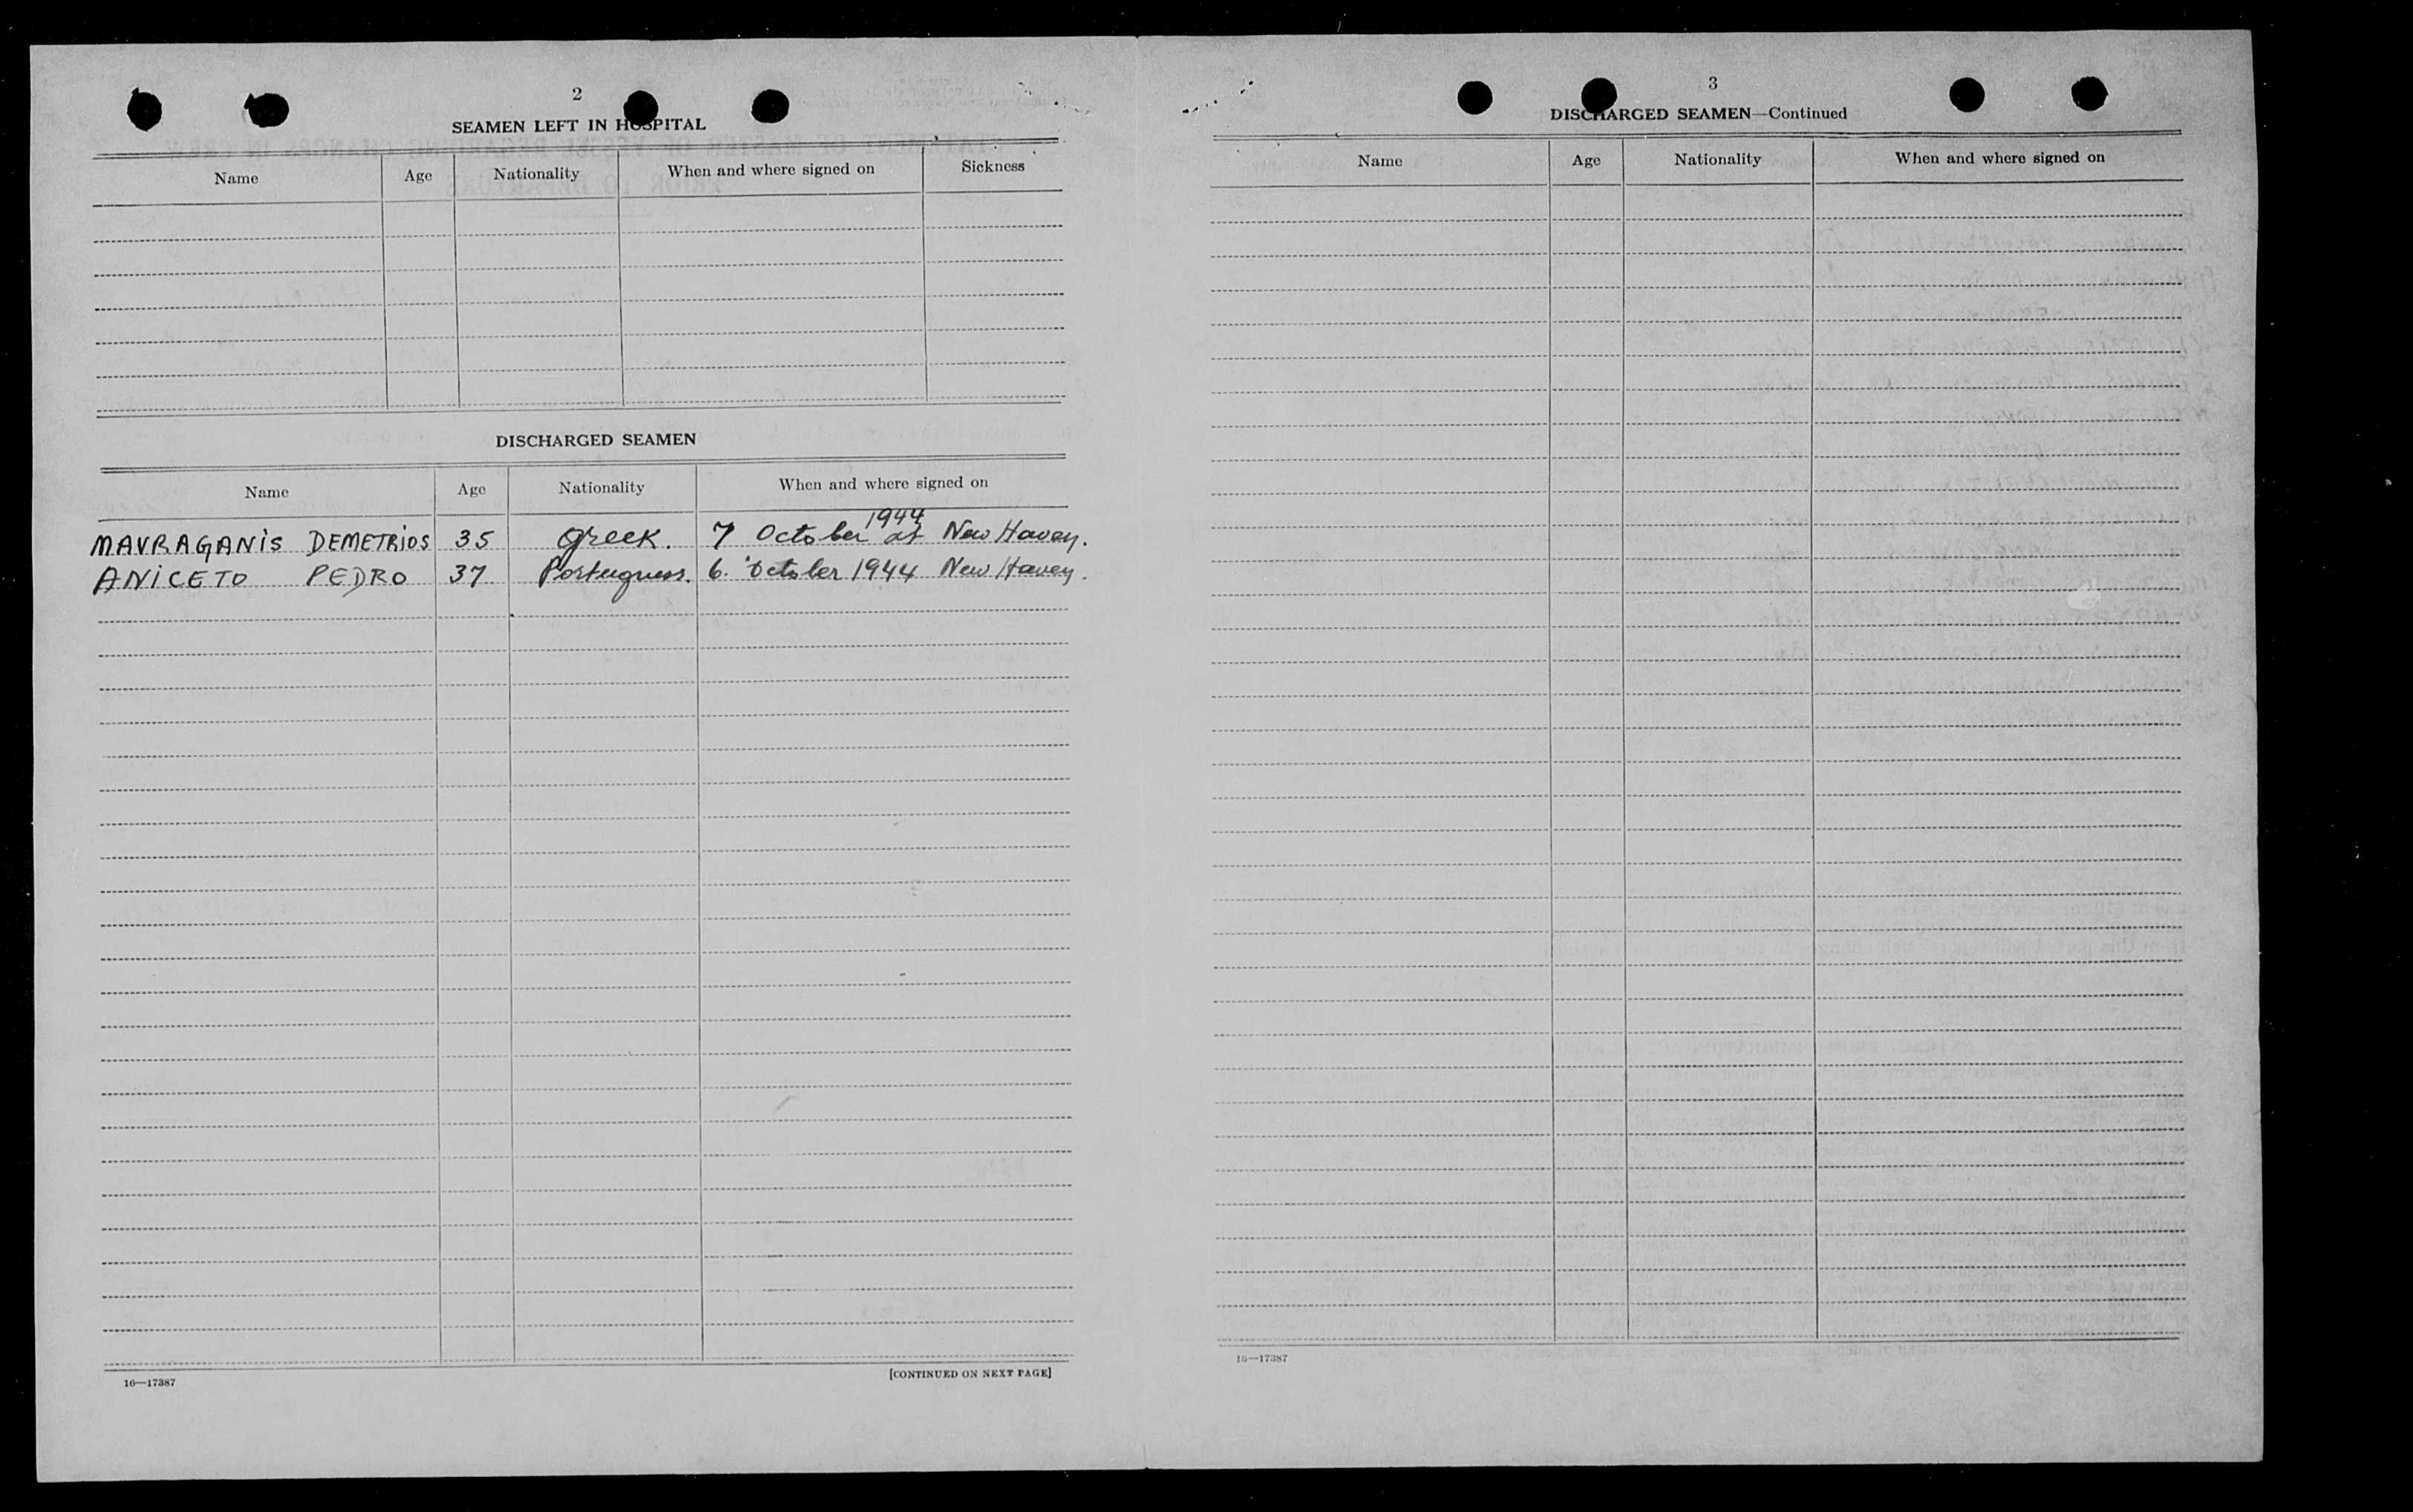 2
SEAMEN LEFT IN HOSPITAL
Name Age Nationality When and where signed on Sickness
DISCHARGED SEAMEN
Name Age Nationality When and where signed on
MAVRAGANIS DEMETRIOS 35 Greek. 7 October 1944 at New Haven.
ANICETO PEDRO 37 Portuguess. 6. October 1944 New Haven.
16—17387
[CONTINUED ON NEXT PAGE]
3
DISCHARGED SEAMEN—Continued
Name Age Nationality When and where signed on
16—17387